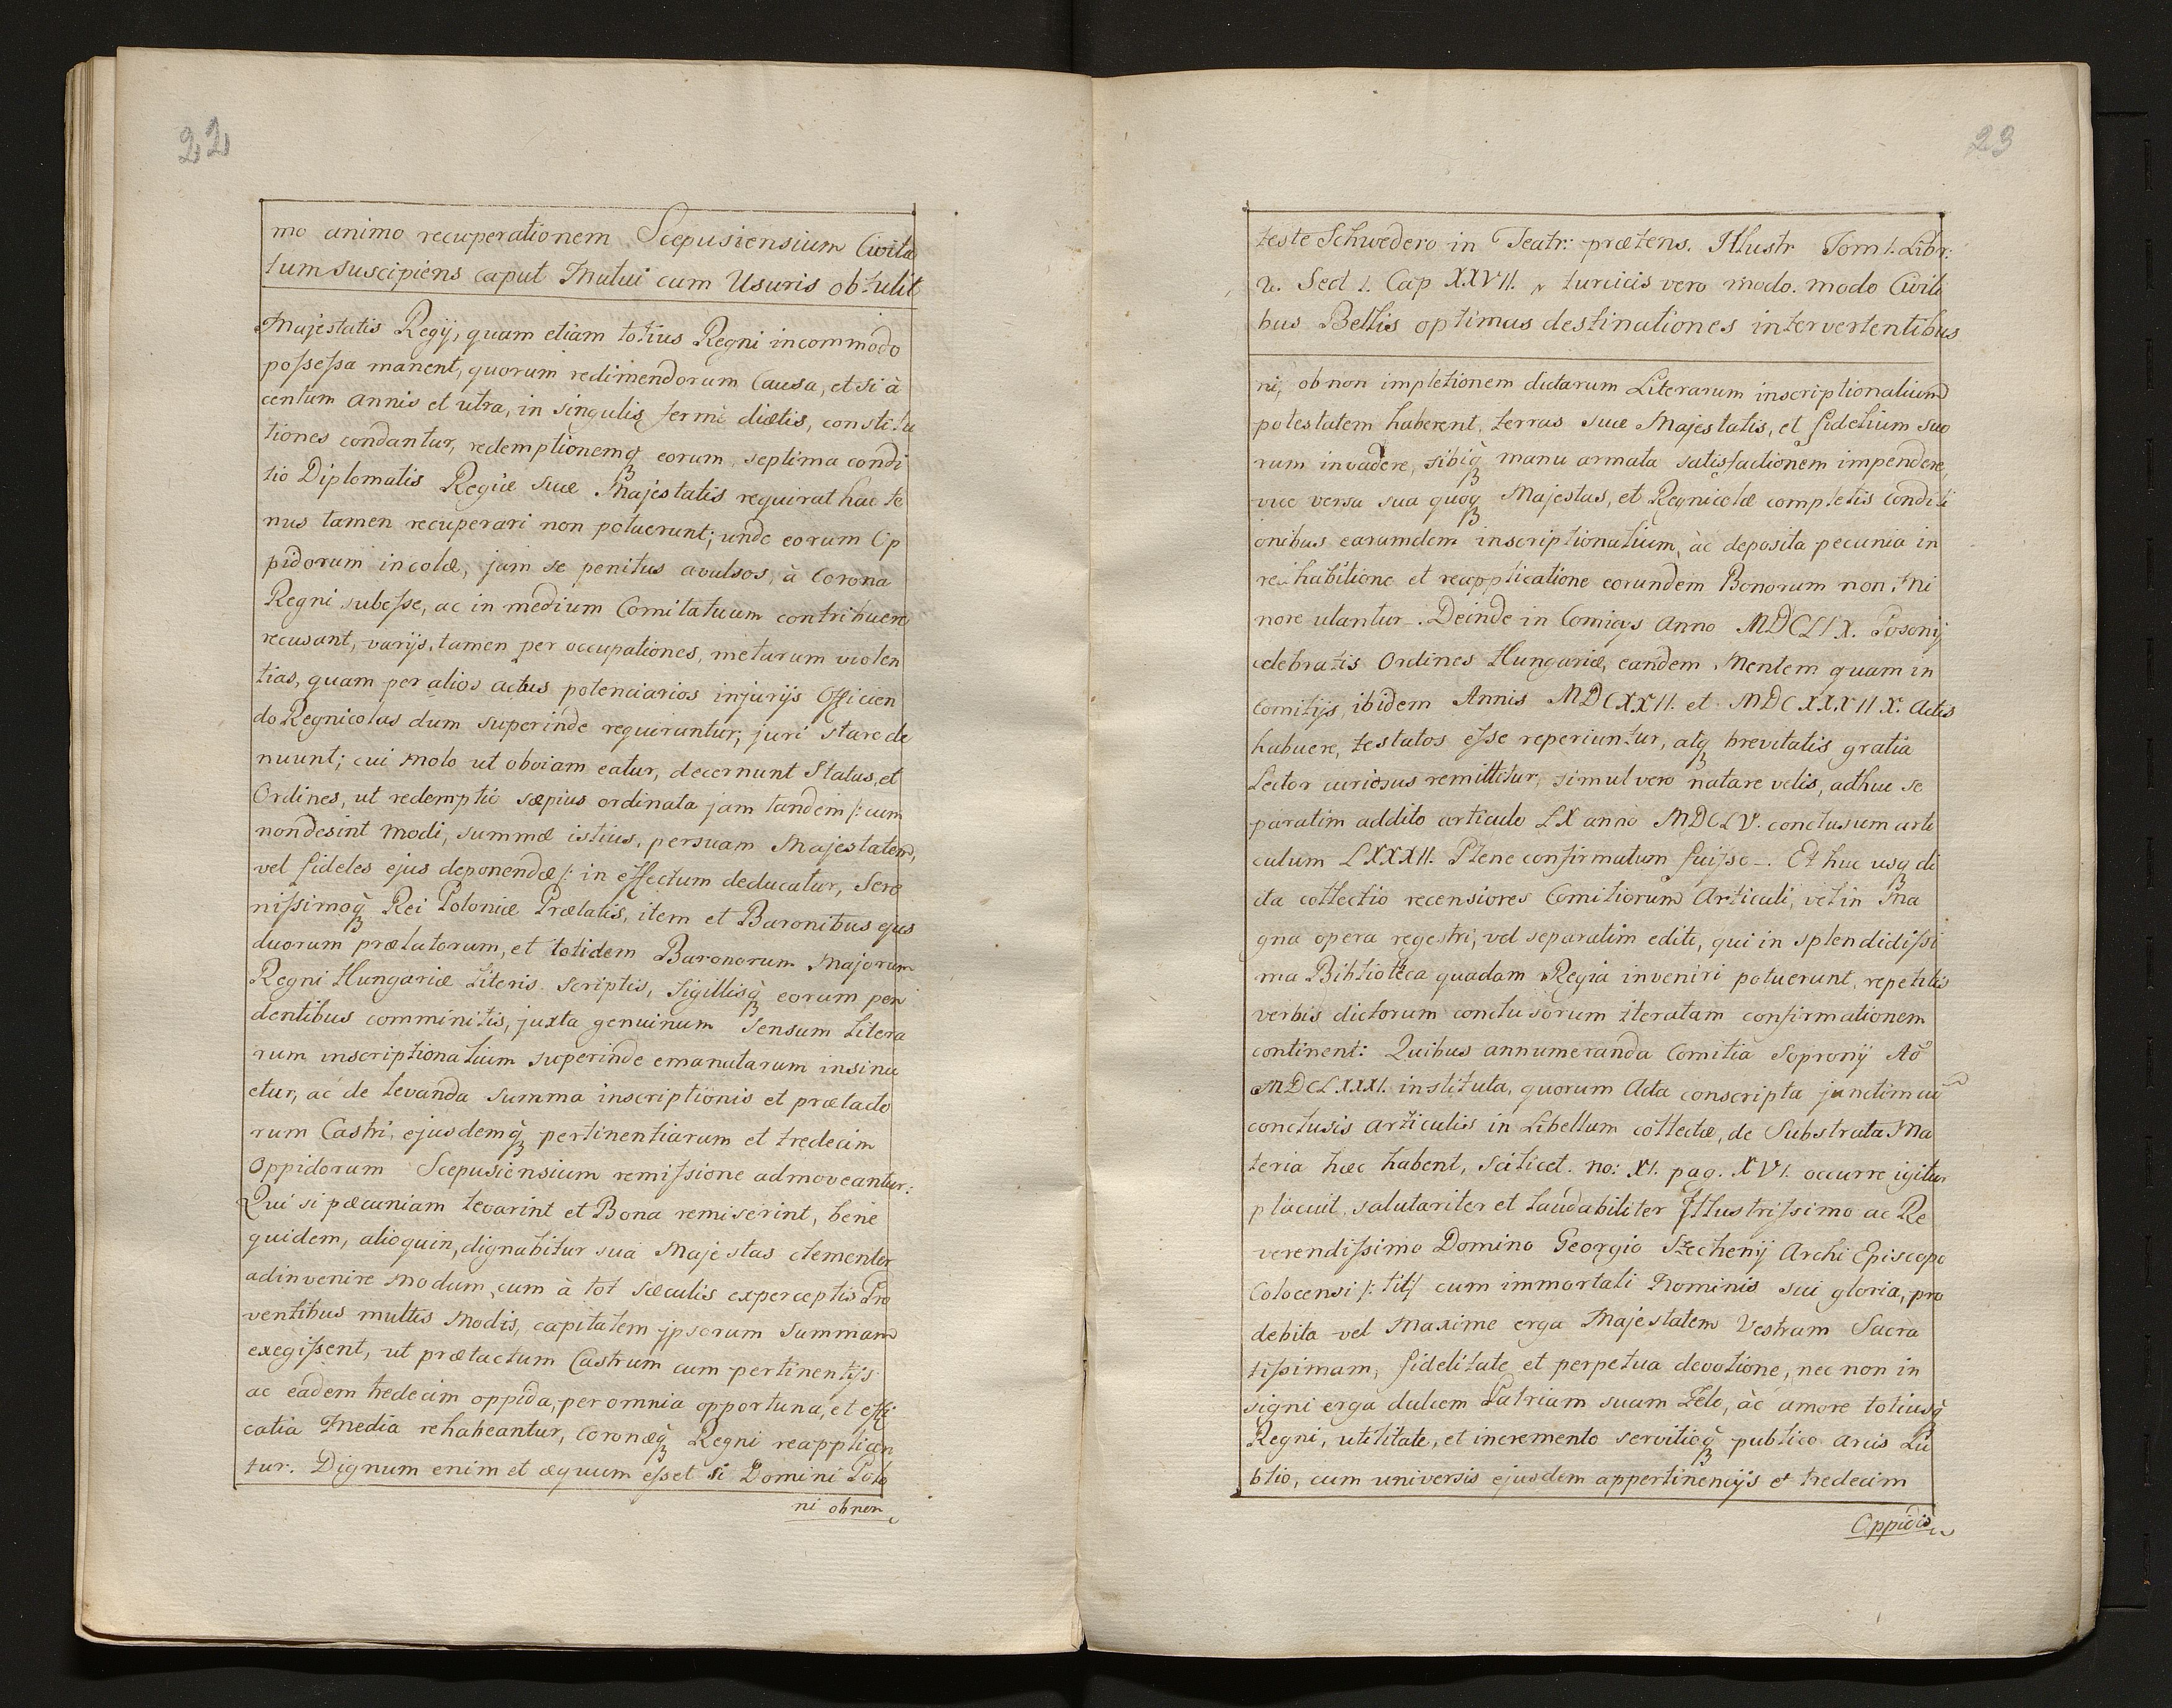 22
mo animo recuperationem Scepusiensium Civita
tum suscipiens caput Mutui cum Usuris obtulit
Majestatis Regij, quam etiam totius Regni incommodo
possessa manent, quorum redimendorum Causa, et si à
centum annis et utra, in singulis fermè diætis, constitu
tiones condantur, redemptionemq3 eorum, septima condi
tio Diplomatis Regiæ suæ Majestatis requirat hac te
nus tamen recuperari non potuerunt; unde eorum Op
pidorum incolæ, jam se penitus avulsos, à Corona
Regni subesse, ac in medium Comitatuum contribuere
recusant, varijs, tamen per occupationes, metarum violen
tias, quam per alios actus potenciarios injurijs Officien
do Regnicolas dum superinde requiruntur, juri stare de
nuunt; cui molo ut obviam eatur, decernunt Status, et
Ordines, ut redemptio sæpius ordinata jam tandem /: cum
non desint modi, summæ istius, per suam Majestatem,
vel fideles ejus deponendæ /: in effectum deducatur, Sere
nissimoq3 Rei Poloniæ Prælatis, item et Baronibus ejus
duorum prælatorum, et totidem Baronorum Majorum
Regni Hungariæ Literis scriptis, Sigillisq3 eorum pen
dentibus comminitis, juxta genuinum Sensum Litera
rum inscriptionalium superinde emanatarum insinu
etur, ac de levanda Summa inscriptionis et prætacto
rum Castri, ejusdemq3 pertinentiarum et tredecim
Oppidorum Scepusiensium remissione admoveantur:
Qui si pæcuniam levarint et Bona remiserint, bene
quidem, alioquin, dignabitur sua Majestas clementer
adinvenire modum, cum à tot sæculis experceptis Pro
ventibus multis modis, capitatem ipsorum Summam
exegissent, ut prætactum Castrum cum pertinentijs
ac eadem tredecim oppida, per omnia opportuna, et effi
catia Media rehabeantur, Coronæq3 Regni reapplicen
tur. Dignum enim et æquum esset si Domini Polo
ni ob non
23
teste Schwedero in Teatr: prætens. Illustr Tom 1. Libr:
2. Sect 1. Cap XXVII. turcicis vero modo. modo Civili
bus Bellis optimas destinationes intervertentibus
ni, ob non impletionem dictarum Literarum inscriptionalium
potestatem haberent, terras suæ Majestatis, et fidelium suo
rum invadere, sibiq3 manu armata satisfactionem impendere,
vice versa sua quoq3 Majestas, et Regnicolæ completis conditi
onibus earumdem inscriptionalium, àc deposita pecunia in
reihabitione et reapplicatione eorundem Bonorum non Mi
nore utantur. Deinde in Comicijs Anno MDCLIX. Posonij
celebratis Ordines Hungariæ, eandem Mentem quam in
Comitijs ibidem Annis MDCXXII. et MDCXXXIIX. Actis
habuere, testatos esse reperiuntur, atq3 brevitatis gratia
Lector curiosus remittitur, simul vero natare velis, adhuc se
paratim addito articulo LX anno MDCLV. conclusum arti
culum LXXXII. Plene confirmatum fuisse. Et huc usq3 di
cta collectio recensiores Comitiorum Articuli, vel in Ma
gna opera regestri, vel separatim editi, qui in splendidissi
ma Biblioteca quadam Regia inveniri potuerunt, repetitis
verbis dictorum conclusorum iteratam confirmationem
continent: Quibus annumeranda Comitia Sopronij Aõ
MDCLXXXI. instituta, quorum Acta conscripta junctim cũ
conclusis Articulis in Libellum collectæ, de Substrata Ma
teria hæc habent, scilicet. no: XI. pag. XVI. occurre igitur
placuit, salutariter et laudabiliter Illustrissimo ac Re
verendissimo Domino Georgio Szechenij Archi Episcopo
Colocensi /: tit/ cum immortali Nominis sui gloria, pro
debita vel Maxime erga Majestatem Vestram Sacra
tissimam, fidelitate et perpetua devotione, nec non in
signi erga dulcem Patriam suam Zelo, àc amore totiusq3
Regni, utilitate, et incremento servitioq3 publico arcis Lu
blio, cum universis ejusdem appertinencijs et tredecim
Oppidis